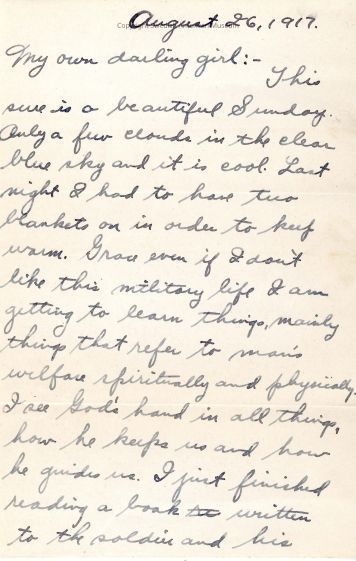 August 26, 1917.
My own darling girl:-
This
sure is a beautiful Sunday.
Only a few clouds in the clear
blue sky and it is cool. Last
night I had to have two
blankets on in order to keep
warm. Grace even if I don't
like this military life I am
getting to learn things, mainly
things that refer to man's
wilfare spiritually and physically.
I see God's hand in all things,
how he keeps us and how
he guides us. I just finished
reading a book written
to the soldier and his